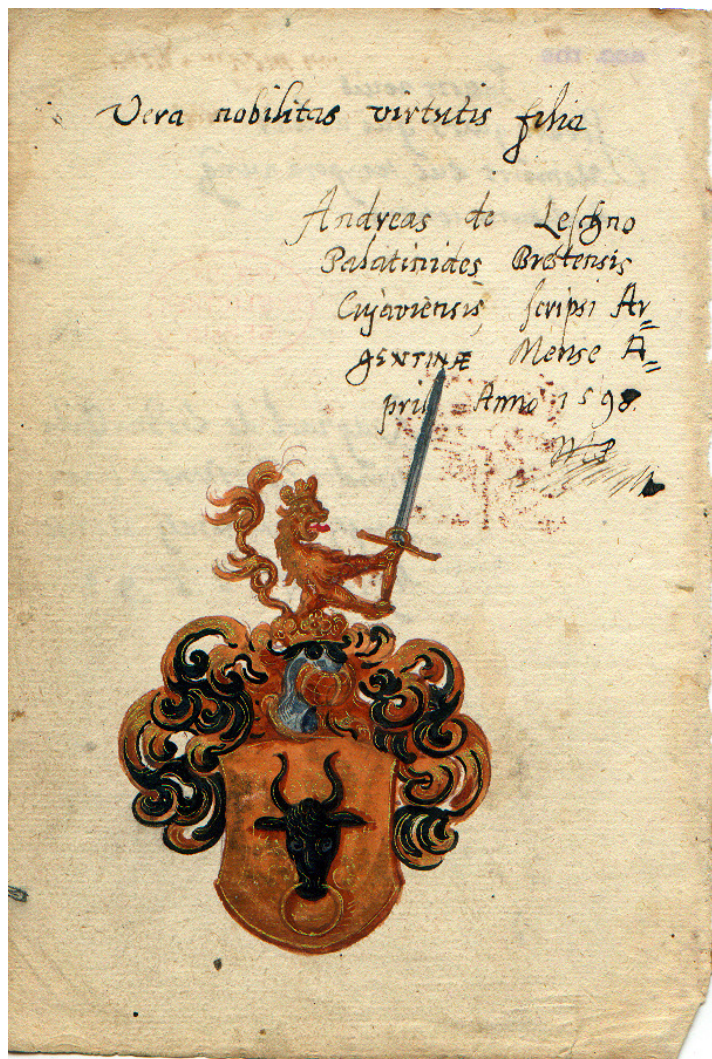 Vera nobilitas virtutis filia
Andreas de Leschno
Palatinides Brestensis
Cujaviensis scripsi Ar=
gentinæ Mense A=
pril Anno 1598.